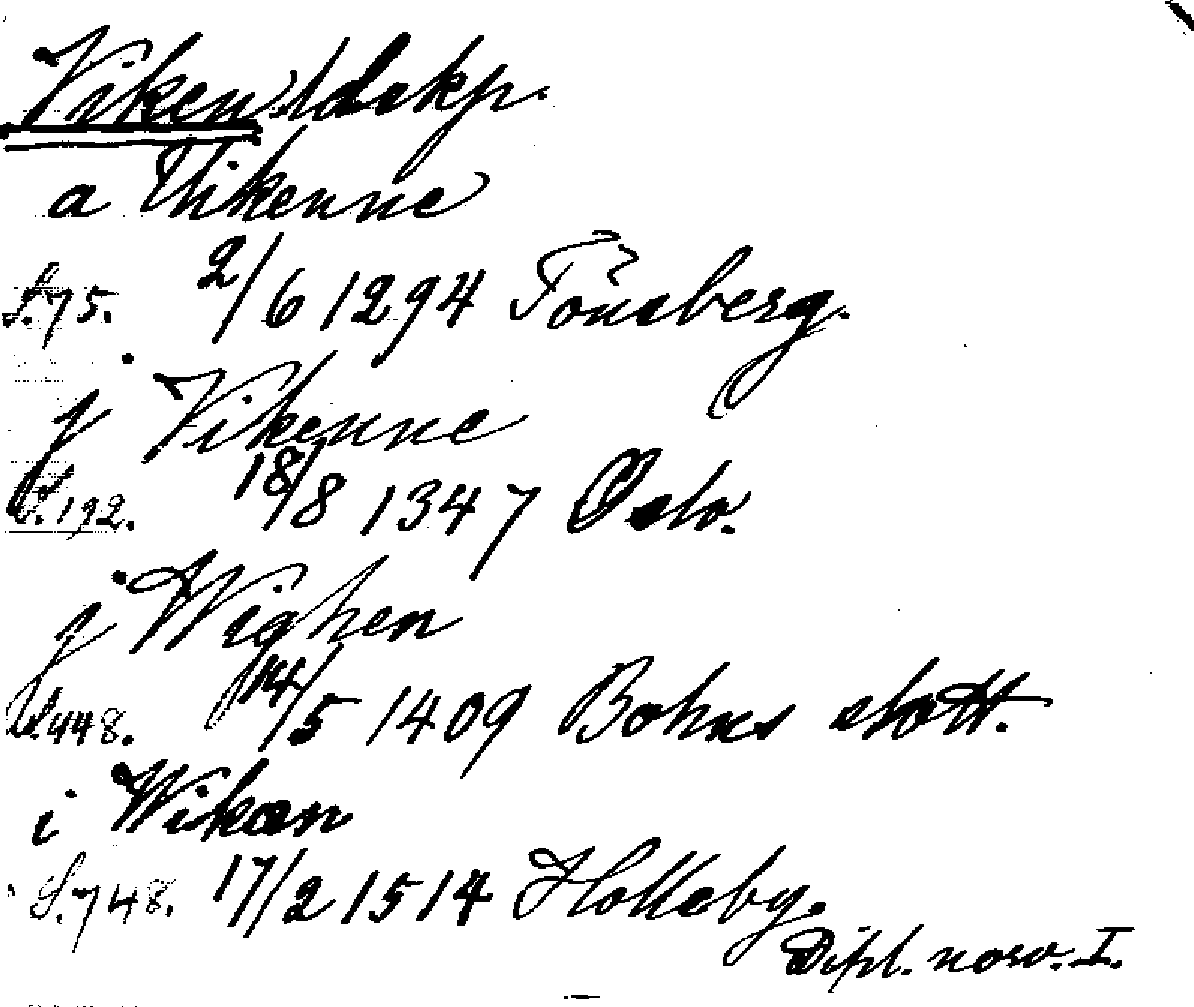 Viken, ldskp.
a Vikenne
S. 75. 2/6 1294 Tönsberg.
j Vikenne
S. 192. 18/8 1347 Oslo.
j Wighen
S. 448. 14/5 1409 Bohus slott.
i Wikæn
S. 748. 17/2 1514 Holleby.
Dipl. norv. I.